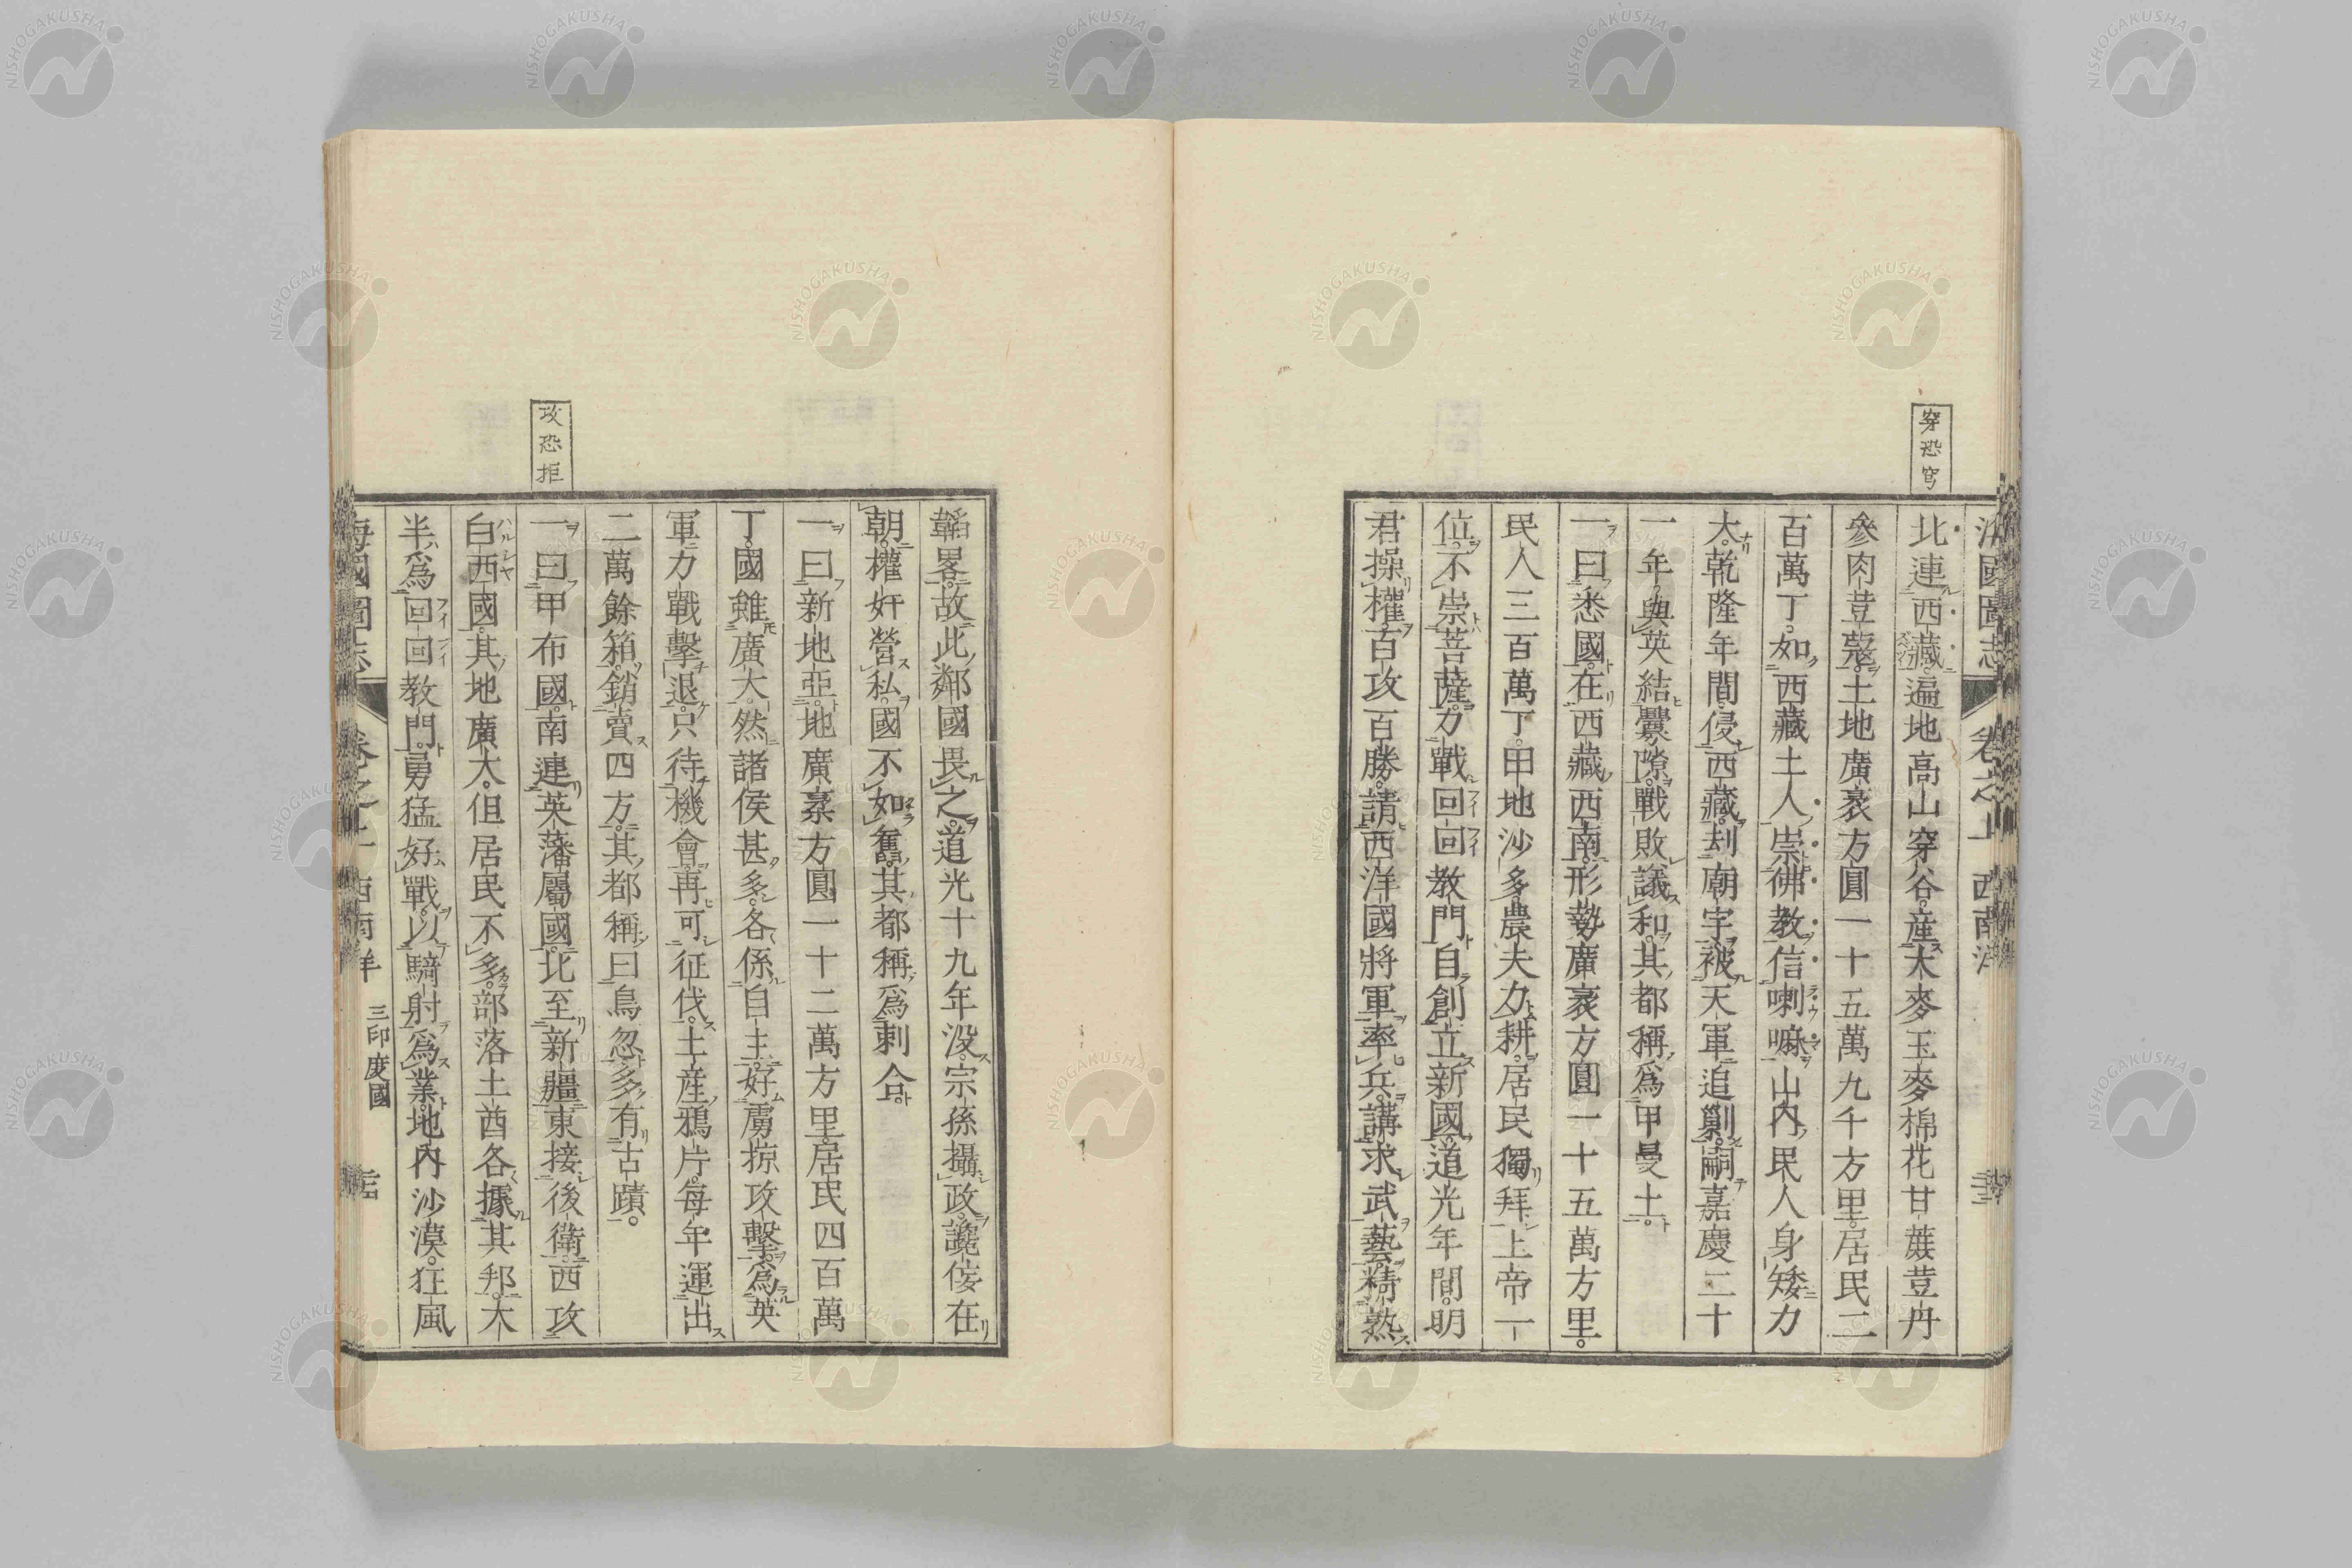 穿恐穹
海國圖志 卷之上 西南洋
北連西藏。遍地高山穿谷。産大麥玉麥棉花甘蔗荳丹
參肉荳蔲。土地廣袤方圓一十五萬九千方里。居民二
百萬丁。如西藏土人。崇佛教信喇嘛。山內民人。身矮力
大。乾隆年間。侵西藏。刦廟宇。被天軍追剿。嗣嘉慶二十
一年。與英結釁隙。戰敗議和。其都稱爲甲曼土。
一曰悉國。在西藏西南。形勢廣袤方圓一十五萬方里。
民人三百萬丁。甲地沙多。農夫力耕。居民獨拜上帝一
位。不崇菩薩。力戰回回教門。自創立新國。道光年間。明
君操權。百攻百勝。請西洋國將軍率兵。講求武藝。精熟
韜畧。故此鄰國畏之。道光十九年沒。宗孫攝政。讒佞在
朝。權奸營私。國不如舊。其都稱爲剌合。
一曰新地亞。地廣袤方圓一十二萬方里。居民四百萬
丁。國雖廣大。然諸侯甚多。各係自主。好虜掠攻擊。爲英
軍力戰擊退。只待機會。再可征伐。土産鴉片。每年運出
二萬餘箱。銷賣四方。其都稱曰烏忽。多有古蹟。
攻恐拒
一曰甲布國。南連英藩屬國。北至新疆。東接後衛。西攻
白西國。其地廣大。但居民不多。部落土酋各據其邦。大
半爲回回教門。勇猛好戰。以騎射爲業。地內沙漠。狂風
海國圖志 卷之上 西南洋 三印度國